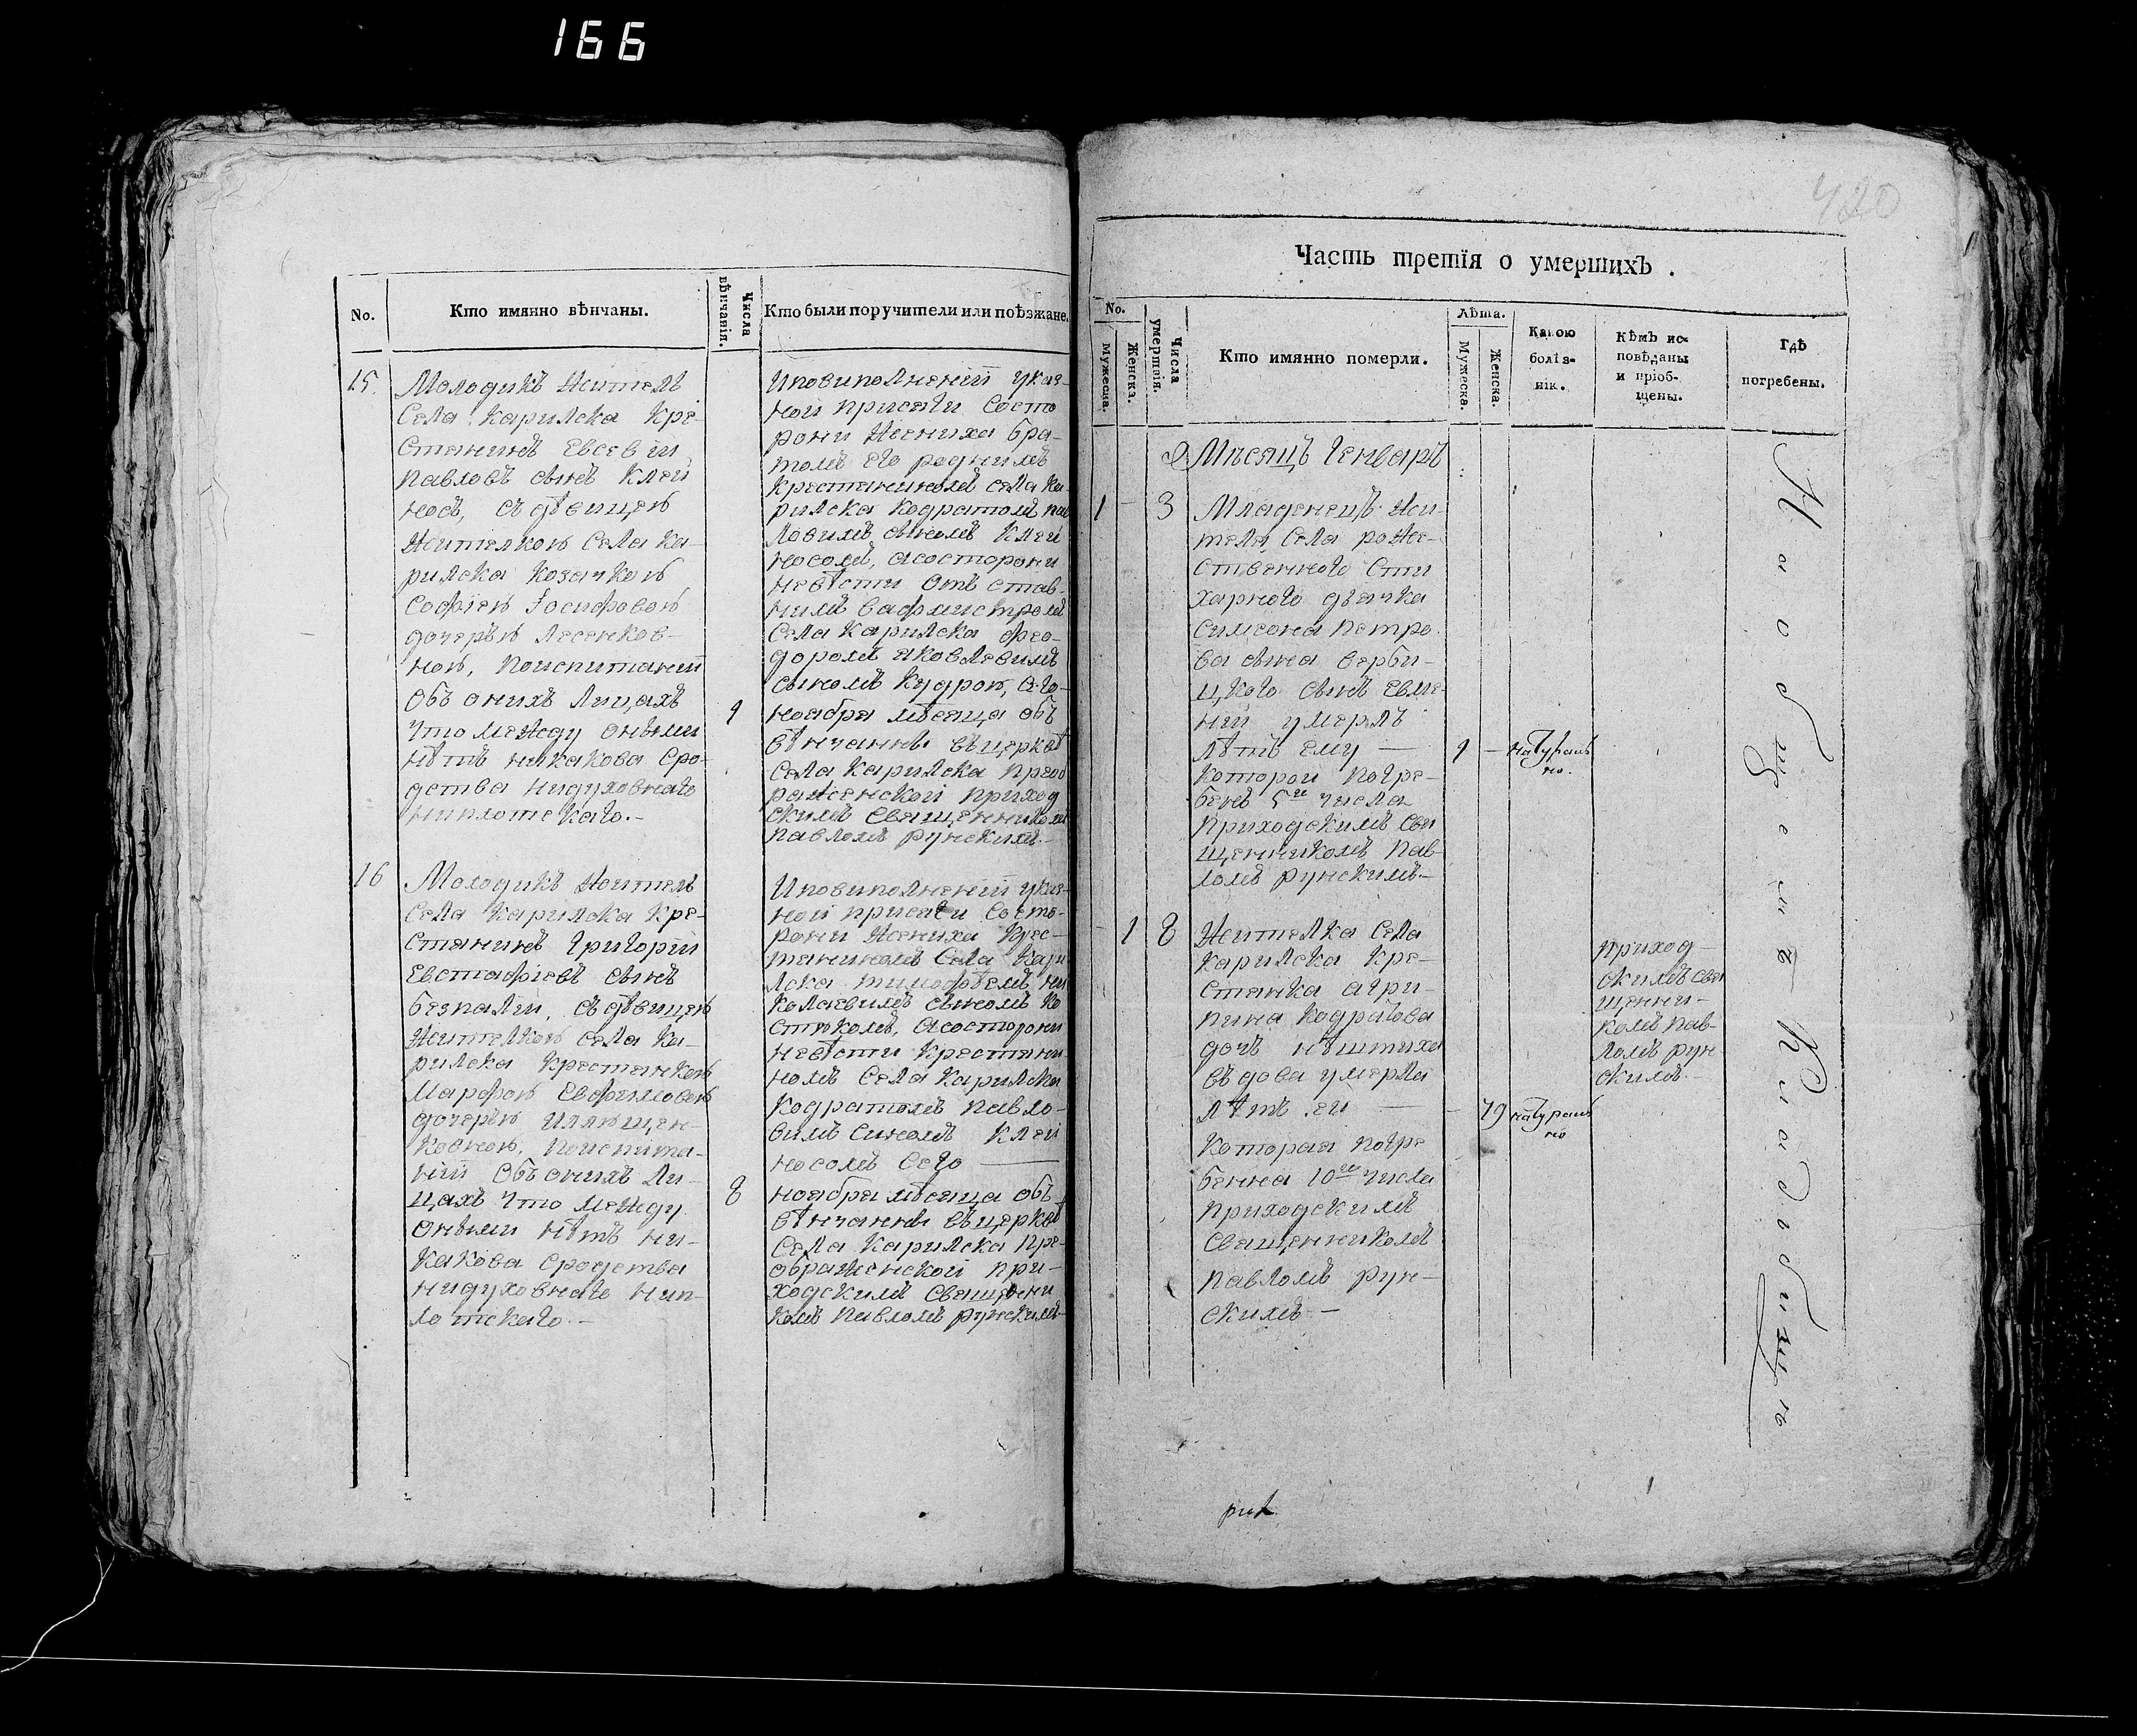 166
No.
Кто имянно вѣнчаны.
Числа вѣнчанія.
Кто были поручители или поѣзжане.
15.
Молодикъ Житель
Села Карилска Кре-
стянинъ Евсевій
Павловъ сынъ Клей
носъ, съ дѣвицею
Жителкою Села Ка-
рилска Козачкою
Софіею Іосифовою
дочерью Лесенков-
ною, поиспитаніи
Объ онихъ Лицахъ
Что между оными
Нѣтъ никакова Сро-
дства нидуховнаго
ниплотскаго.-
9
Иповиполненіи указ-
ной присяги Состо
рони Жениха бра-
томъ его роднимъ
Крестяниномъ села Ка-
рилска Кодратомъ Пав
ловимъ сыномъ Клей
носомъ, асосторони
невѣсти Отъ став-
нимъ вафмистромъ
Села Карилска Фео-
доромъ Яковлевимъ
сыномъ Кудрою, сего-
ноября мѣсяца объ
вѣнчанны въ церквѣ
Села Карилска Преоб
раженской приход
скимъ Священникомъ
Павломъ Рунскимъ.-
16
Молодикъ Житель
Села Карилска Кре-
стянинъ Григорій
Евстафіевъ сынъ
безпалій, съ дѣвицею
Жителкою Села Ка-
рилска Крестянкою
Марфою Евфимовою
дочерью Иллющен-
ковною, поиспита-
ніи Объ онихъ Ли-
цахъ Что между
Оными Нѣтъ ни-
какова Сродства
нидуховнаго нип-
лотскаго.-
8
Иповиполненіи указ-
ной присяги Состо-
рони Жениха Крес-
тяниномъ Села Кари
лска Тимофѣемъ Ни
колаевимъ сыномъ Ко
стюкомъ, асосторони
невѣсти Крестяни-
номъ Села Карилска
Кодратомъ Павло-
вимъ Синомъ Клей
носомъ Сего —
ноября мѣсяца объ-
вѣнчанны въ церквѣ
Села Карилска Пре-
ображенской при-
ходскимъ Священни
комъ Павломъ Рунскимъ-
420
Часть третія о умершихъ .
No.
Мужеска.
Женска.
Числа умертвія.
Кто имянно померли.
Лѣта.
Мужеска.
Женска.
Какою
болѣз-
нію.
Кѣмъ ис-
повѣданы
и пріоб-
щены.
Гдѣ
погребены.
Мѣсяцъ Генварь
1
-
3
Младенецъ Жи-
теля Села роже-
ственного Сти
харного дячка
Симеона Петро
ва сына верби-
цкого сынъ Евме-
ній умерлъ
Лѣтъ ему —
1
-
натураль
но.
Которой погре-
бенъ 5го числа
Приходскимъ Свя
щенникомъ Пав-
ломъ Рунскимъ-
-
1
8
Жителка Села
Карилска Кре-
стянка агри-
пина Кодратова
дочъ
въдова умерла
Лѣтъ ей —
-
79
натураль
но
Которая погре
бенна 10го числа
Приходскимъ
Священникомъ
Павломъ Рун-
скимъ-
Приход-
скимъ свя
щенни-
комъ Пав-
ломъ Рун
скимъ.-
Наобщемъ Кладбищѣ